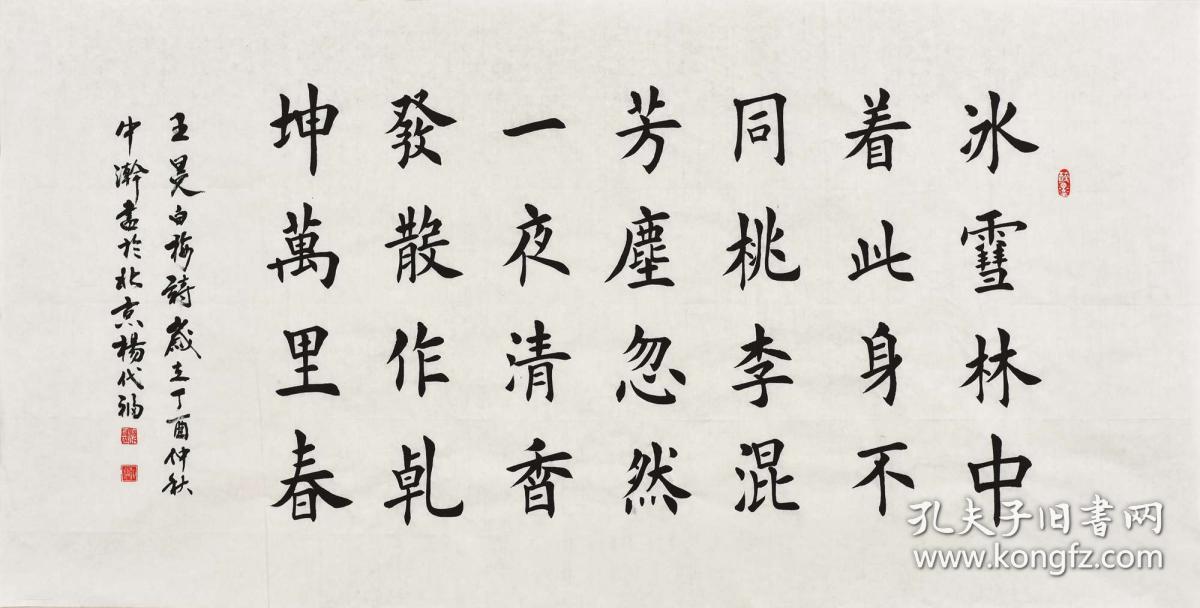 冰雪林中
着此身不
同桃李混
芳塵忽然
一夜清香
發散作乹
坤萬里春
王冕白梅詩歲在丁酉仲秋
中瀚書於北京楊代福
孔夫子旧書网
www.kongfz.com